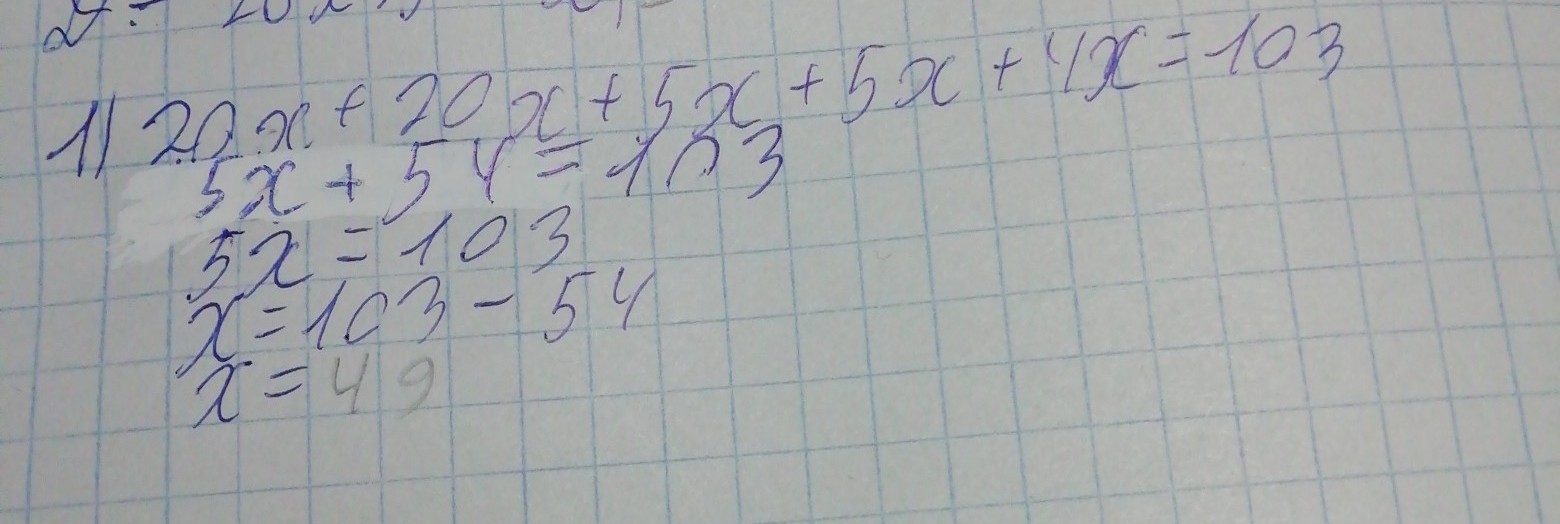 1) 20x + 20x + 5x + 5x + 4x = 103
5x + 54 = 103
5x = 103
x = 103 - 54
x = 49